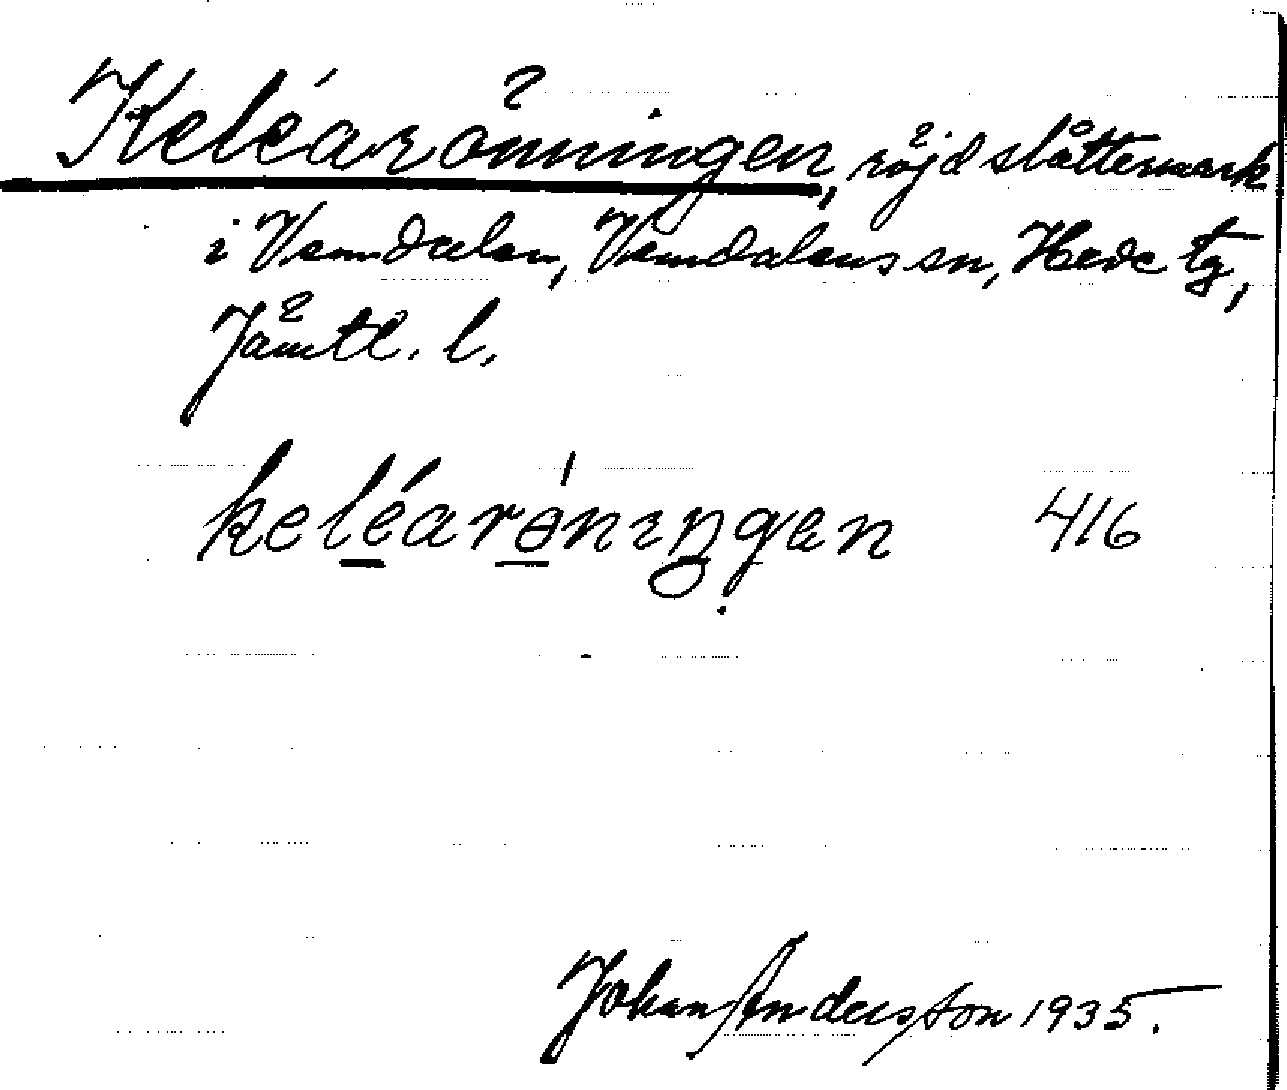 Keléarönningen, röjd slåttermark
i Vemdalen, Vemdalens sn, Hede tg,
Jämtl. l.
keléaröningen 416
Johan Andersson 1935.